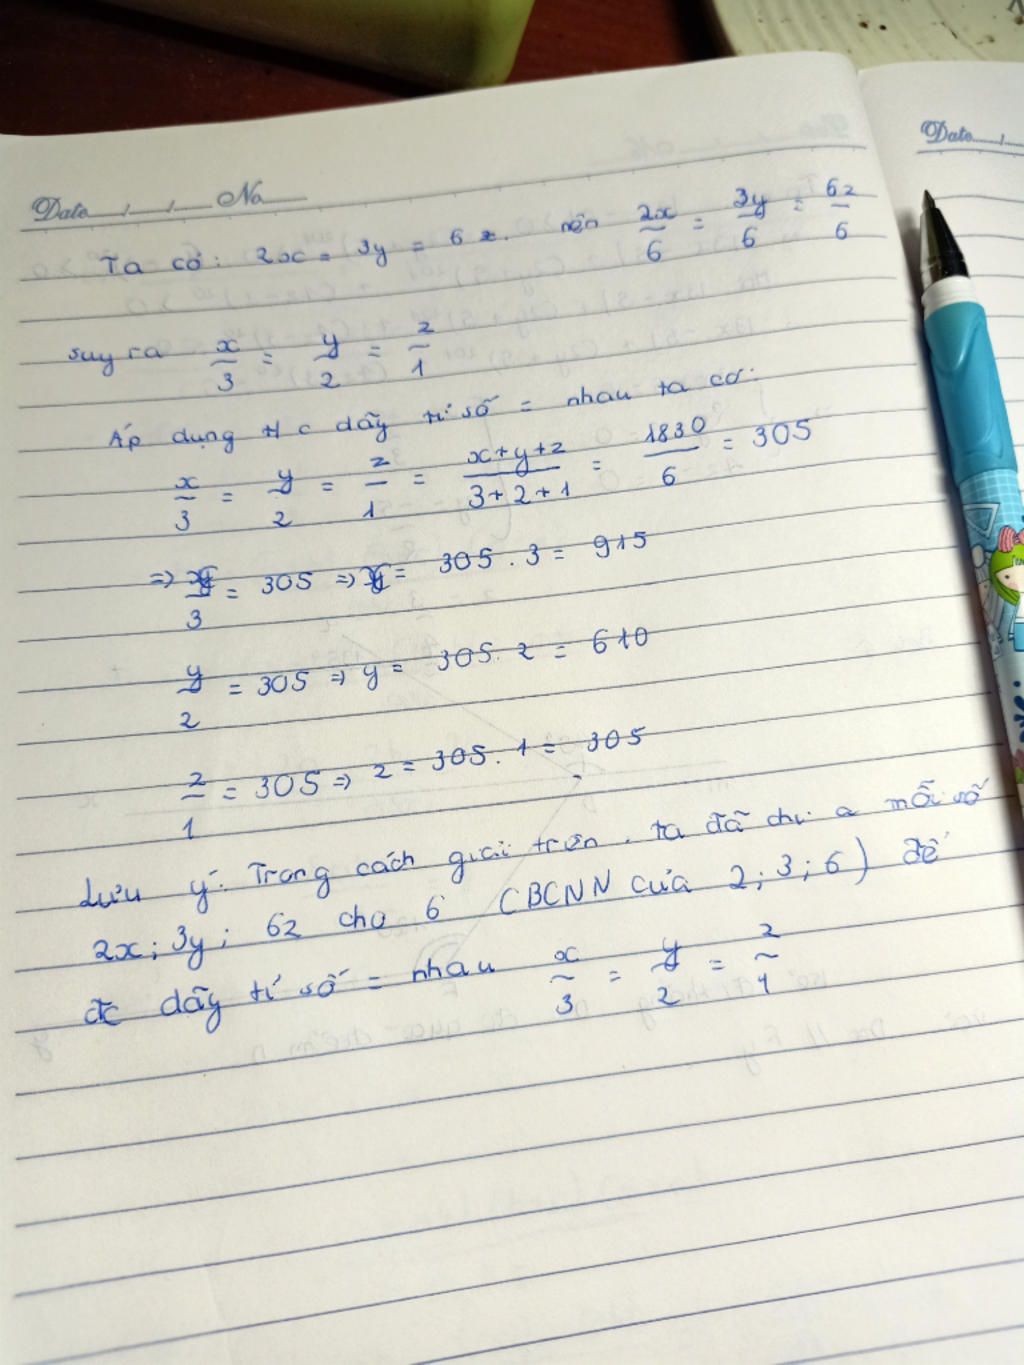 Date / / No
Date /
Ta có: 2x = 3y = 6z. nên 2x/6 = 3y/6 = 6z/6
suy ra x/3 = y/2 = z/1
Áp dụng t/c dãy tỉ số = nhau ta có:
x/3 = y/2 = z/1 = x+y+z/3+2+1 = 1830/6 = 305
=> x/3 = 305 => x = 305 . 3 = 915
y/2 = 305 => y = 305. 2 = 610
z/1 = 305 => z = 305. 1 = 305
Lưu ý: Trong cách giải trên, ta đã chia mỗi số
2x; 3y; 6z cho 6 (BCNN của 2; 3; 6) để
đc dãy tỉ số = nhau x/3 = y/2 = z/1